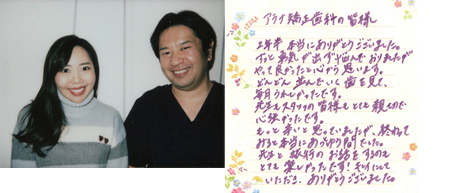 アライ矯正歯科の皆様
2年半本当にありがとうございました。
ずっと勇気が出ず悩んでおりましたが
やって良かったと心から思います。
どんどん並んでいく歯を見て、
毎月うれしかったです。
先生もスタッフの皆様もとても親切で
心強かったです。
もっと長いと思っていましたが、終わって
みると本当にあっという間でした。
先生と旅行のお話をするのも
とても楽しかったです!キレイにして
いただき、ありがとうございました。